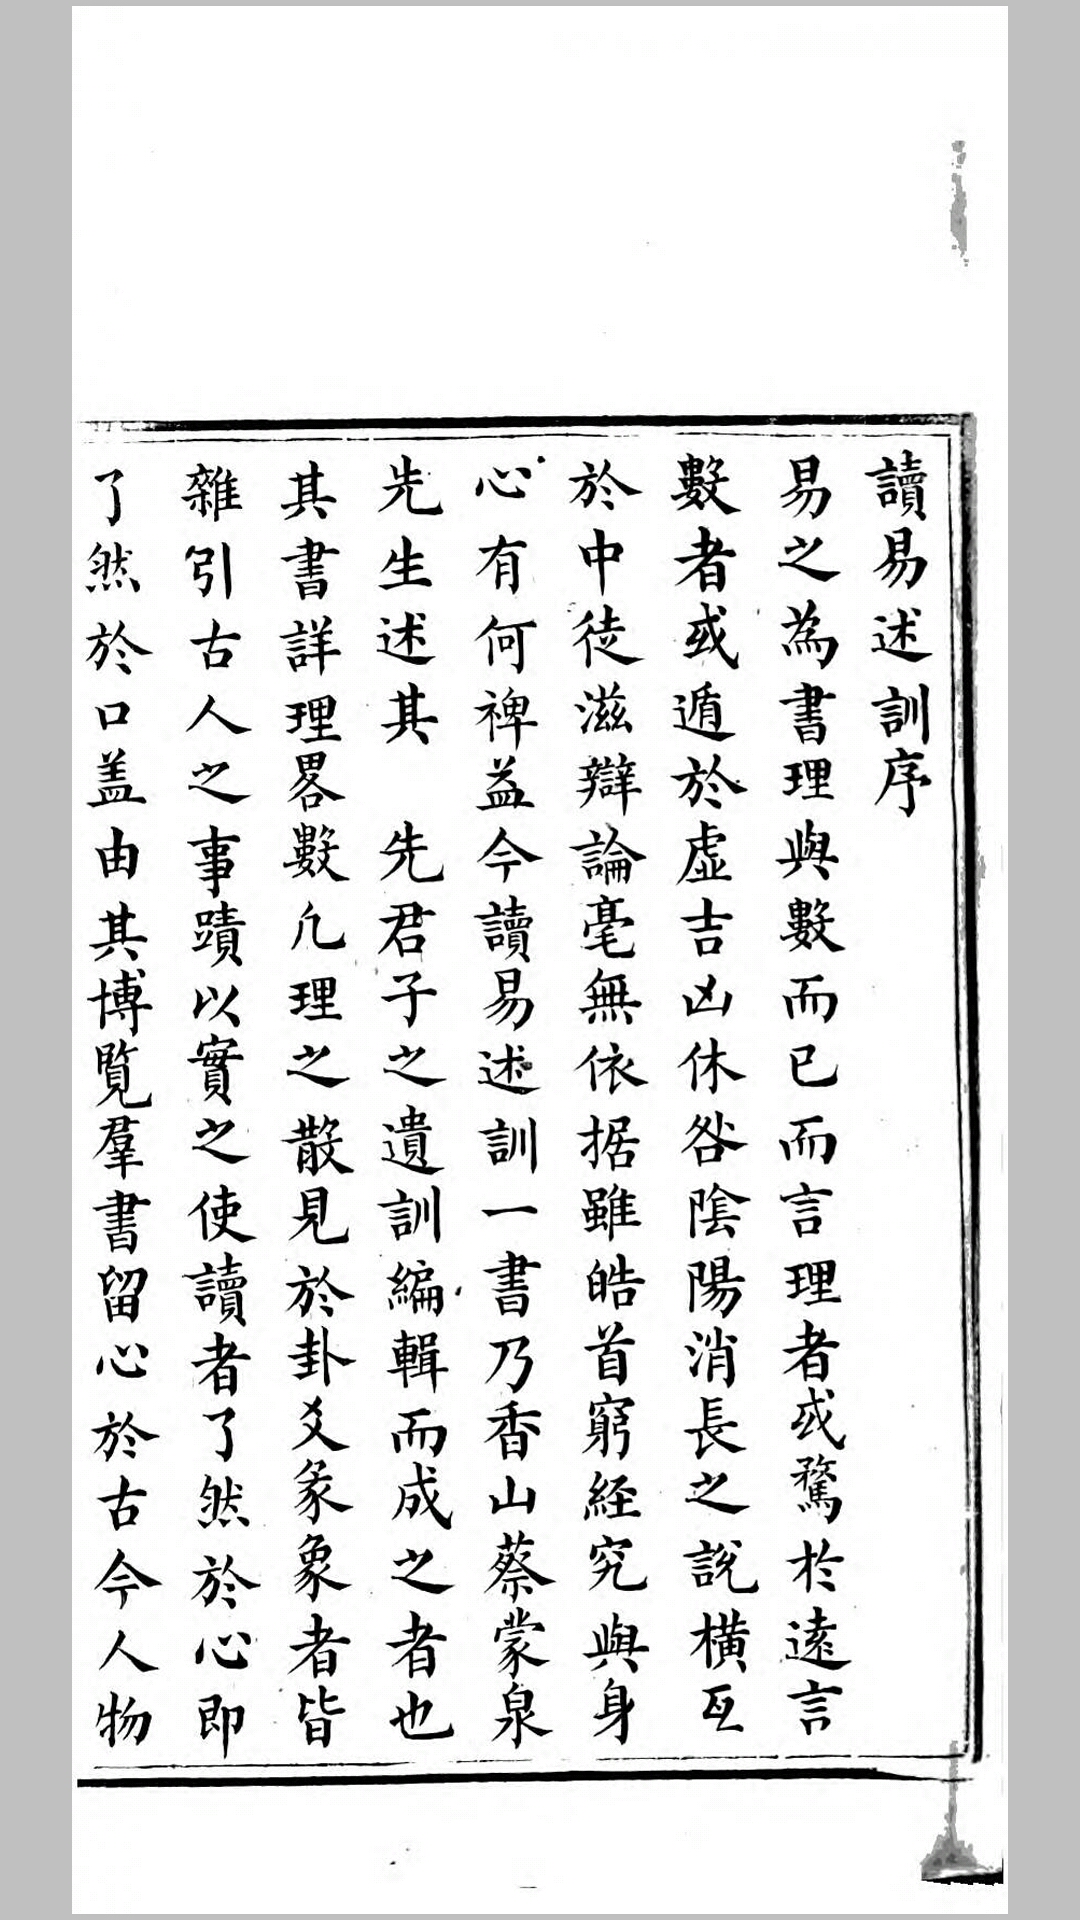 讀易述訓序
易之為書理與數而已而言理者或騖於遠言
數者或遁於虛吉凶休咎陰陽消長之說橫亙
於中徒滋辯論毫無依据雖皓首窮經究與身
心有何裨益今讀易述訓一書乃香山蔡蒙泉
先生述其　先君子之遺訓編輯而成之者也
其書詳理畧數凡理之散見於卦爻彖象者皆
雜引古人之事蹟以實之使讀者了然於心即
了然於口盖由其博覧羣書留心於古今人物